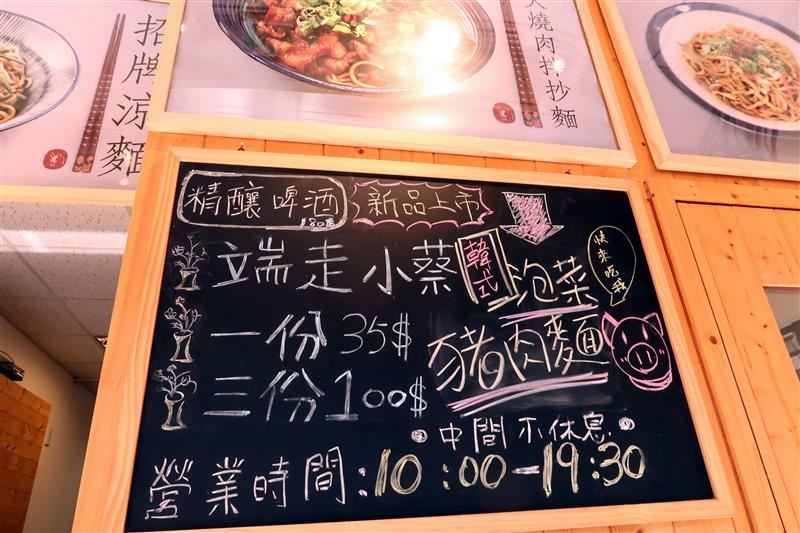 招牌涼麵
火燒肉拌抄麵
精釀啤酒
$80
新品上市
端走小蔡
一份 35$
三份 100$
韓式
泡菜
豬肉麵
快來吃我
中間不休息
營業時間:10:00-19:30